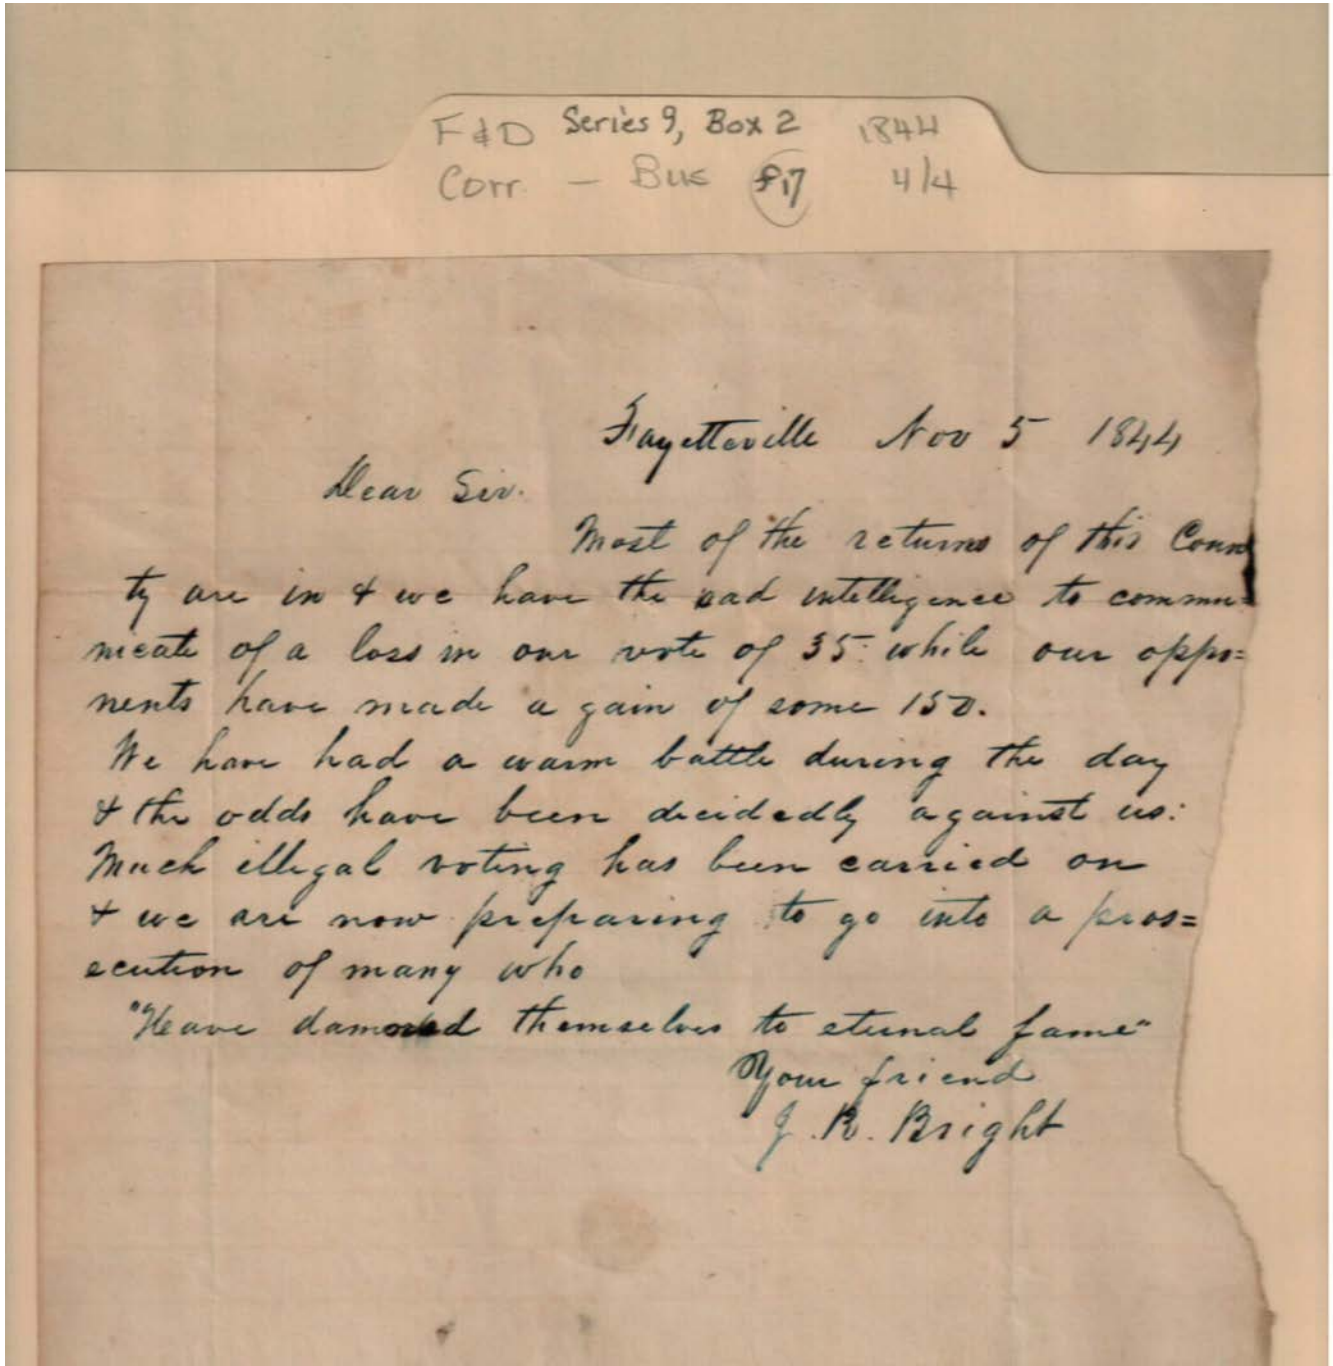 F & D Series 9, Box 2 1844
Corr. — Bus f17 4/4
Fayetteville Nov 5 1844
Dear Sir.
Most of the returns of this Coun
ty are in & we have the sad intelligence to commu=
nicate of a loss in our vote of 35. while our oppo=
nents have made a gain of some 150.
We have had a warm battle during the day
& the odds have been decidedly against us:
Much illegal voting has been carried on
& we are now preparing to go into a pros=
ecution of many who
"Have damned themselves to eternal fame"
Your friend
J. R. Bright